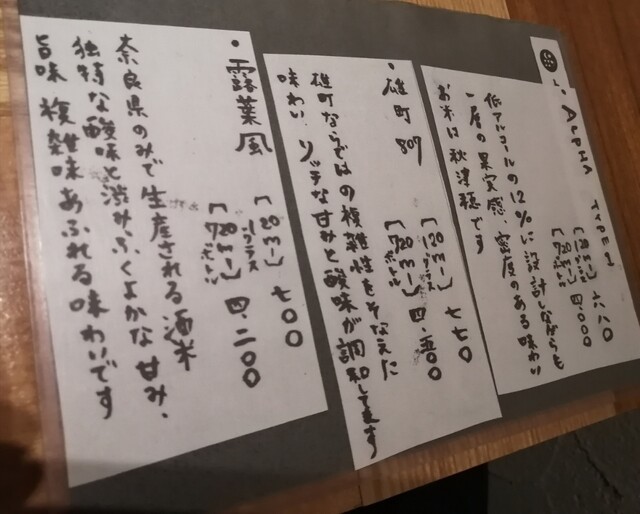 ALPHA TYPE 1
[120ml] 六八〇
1グラス
[720ml] 四.〇〇〇
ボトル
低アルコールの12%に設計しながらも
一層の果実感、密度のある味わい
お米は秋津穂です
・雄町 807
[120ml] 七七〇
1グラス
[720ml] 四.五〇〇
ボトル
雄町ならではの複雑性をそなえた
味わい、リッチな甘みと酸味が調和してます
・露葉風
[120ml] 七〇〇
1グラス
[720ml] 四.二〇〇
ボトル
奈良県のみで生産される酒米
独特な酸味と渋みふくよかな甘み、
旨味 複雑味あふれる味わいです